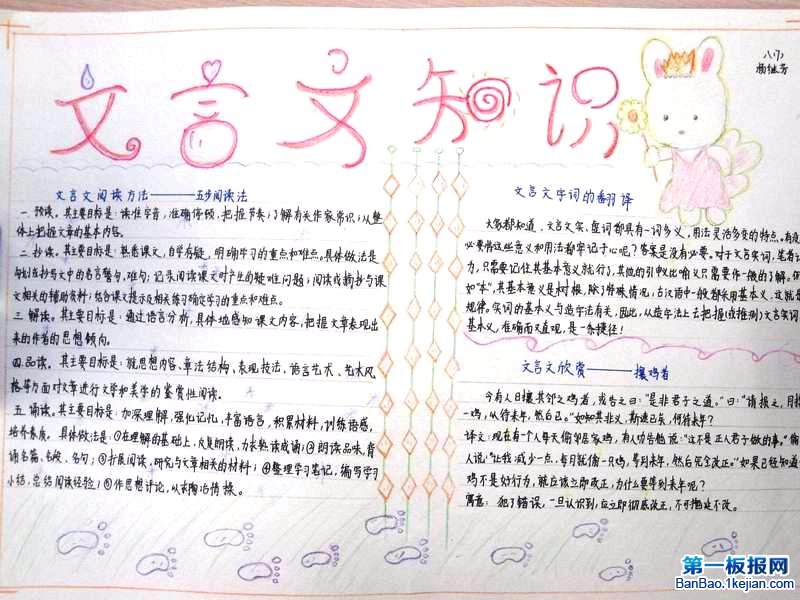 文言文知识
八(7)
文言文阅读方法———五步阅读法
一. 预读。其主要目标是：读准字音，准确停顿，把握节奏；了解有关作家常识；从整
体上把握文章的基本内容。
二. 抄读。其主要目标是：熟悉课文，自学存疑，明确学习的重点和难点。具体做法是
勾划在抄写文中的名言警句，难句；记录阅读课文时产生的疑难问题；阅读或摘抄与课
文相关的辅助资料；结合课文提示及相关练习确定学习的重点和难点。
三. 解读。其主要目标是：通过语言分析，具体地感知课文内容，把握文章表现出
来的作者的思想倾向。
四. 品读。其主要目标是：就思想内容、章法结构、表现技法、语言艺术、艺术风
格等方面对文章进行文学和美学的鉴赏性阅读。
五. 诵读。其主要目标是：加深理解，强化记忆，丰富语言，积累材料，训练语感，
培养素质。具体做法是：①在理解的基础上，反复朗读，力求熟读成诵；②朗读品味，背
诵名篇、名段、名句；③扩展阅读，研究与文章相关的材料；④整理学习笔记，编写学习
小结，总结阅读经验；⑤作思想讨论，从求陶冶情操。
文言文字词的翻译
大家都知道，文言文实、虚词都具有一词多义，用法灵活多变的特点。有
必要将这些意义和用法都牢记于心呢？答案是没有必要。对于文言实词，
力，只需要记住其基本意义就行了，其他的引申义比喻义只需要作一般的了解。
如“本”，其基本意义是树根，除了特殊情况，古汉语中一般都采用基本义，这就是
规律。实词的基本义与造字法有关，因此，从造字法上去把握(或推测)文言实词
基本义，准确而又直观，是一条捷径！
文言文欣赏———攘鸡者
今有人日攘其邻之鸡者，或告之曰：“是非君子之道。”曰：“请损之，月攘
一鸡，以待来年，然后已。”如知其非义，斯速已矣，何待来年？
译文：现在有一个人每天偷邻居家鸡，有人劝告他说：“这不是正人君子做的事。”偷
人说：“让我减少一点，每月就偷一只鸡，等到来年，然后完全改正。”如果已经知道
鸡不是好行为，就应该立即改正，为什么要等到来年呢？
寓意：犯了错误，一旦认识到，应立即彻底改正，不可拖延不改。
第一板报网
BanBao.1kejian.com